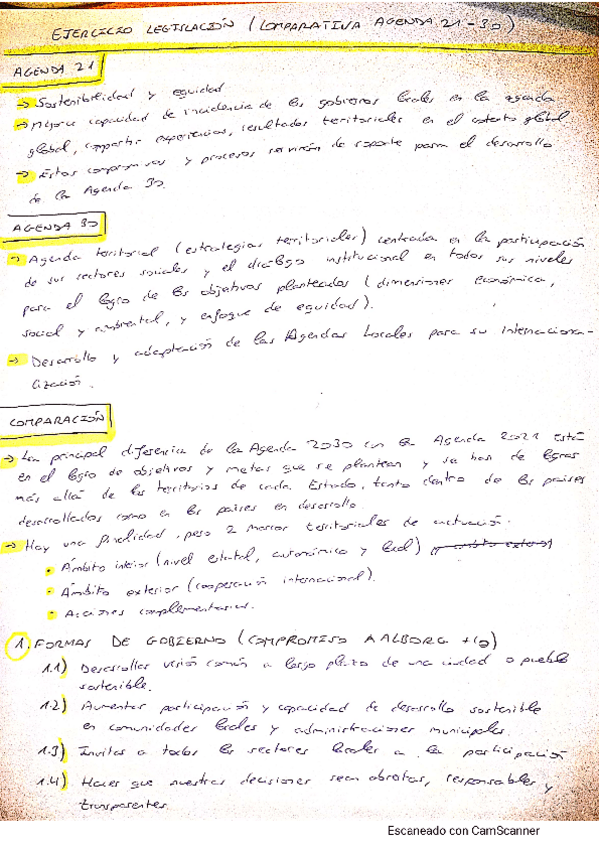 EJERCICIO LEGISLACIÓN (COMPARATIVA AGENDA 21-30)
AGENDA 21
→ Sostenibilidad y equidad
→ Mejorar capacidad de incidencia de los gobiernos locales en la agenda
global, compartir experiencias, resultados territoriales en el contexto global.
→ Estos compromisos y procesos servirán de soporte para el desarrollo
de la Agenda 30.
AGENDA 30
→ Agenda territorial (estrategias territoriales) centrada en la participación
de sus sectores sociales y el diálogo institucional en todos sus niveles
para el logro de los objetivos planteados (dimensiones económica,
social y ambiental, y enfoque de equidad).
→ Desarrollo y adaptación de las Agendas Locales para su internaciona-
lización.
COMPARACIÓN
→ La principal diferencia de la Agenda 2030 con la Agenda 2021 está
en el logro de objetivos y metas que se plantean y se han de lograr
más allá de los territorios de cada Estado, tanto dentro de los países
desarrollados como en los países en desarrollo.
→ Hay una finalidad, pero 2 marcos territoriales de actuación.
• Ámbito interior (nivel estatal, autonómico y local)
• Ámbito exterior (cooperación internacional).
• Acciones complementarias.
1. FORMAS DE GOBIERNO (COMPROMISO AALBORG +10)
1.1) Desarrollar visión común a largo plazo de una ciudad o pueblo
sostenible.
1.2) Aumentar participación y capacidad de desarrollo sostenible
en comunidades locales y administraciones municipales.
1.3) Invitar a todos los sectores locales a la participación
1.4) Hacer que nuestras decisiones sean abiertas, responsables y
transparentes.
Escaneado con CamScanner